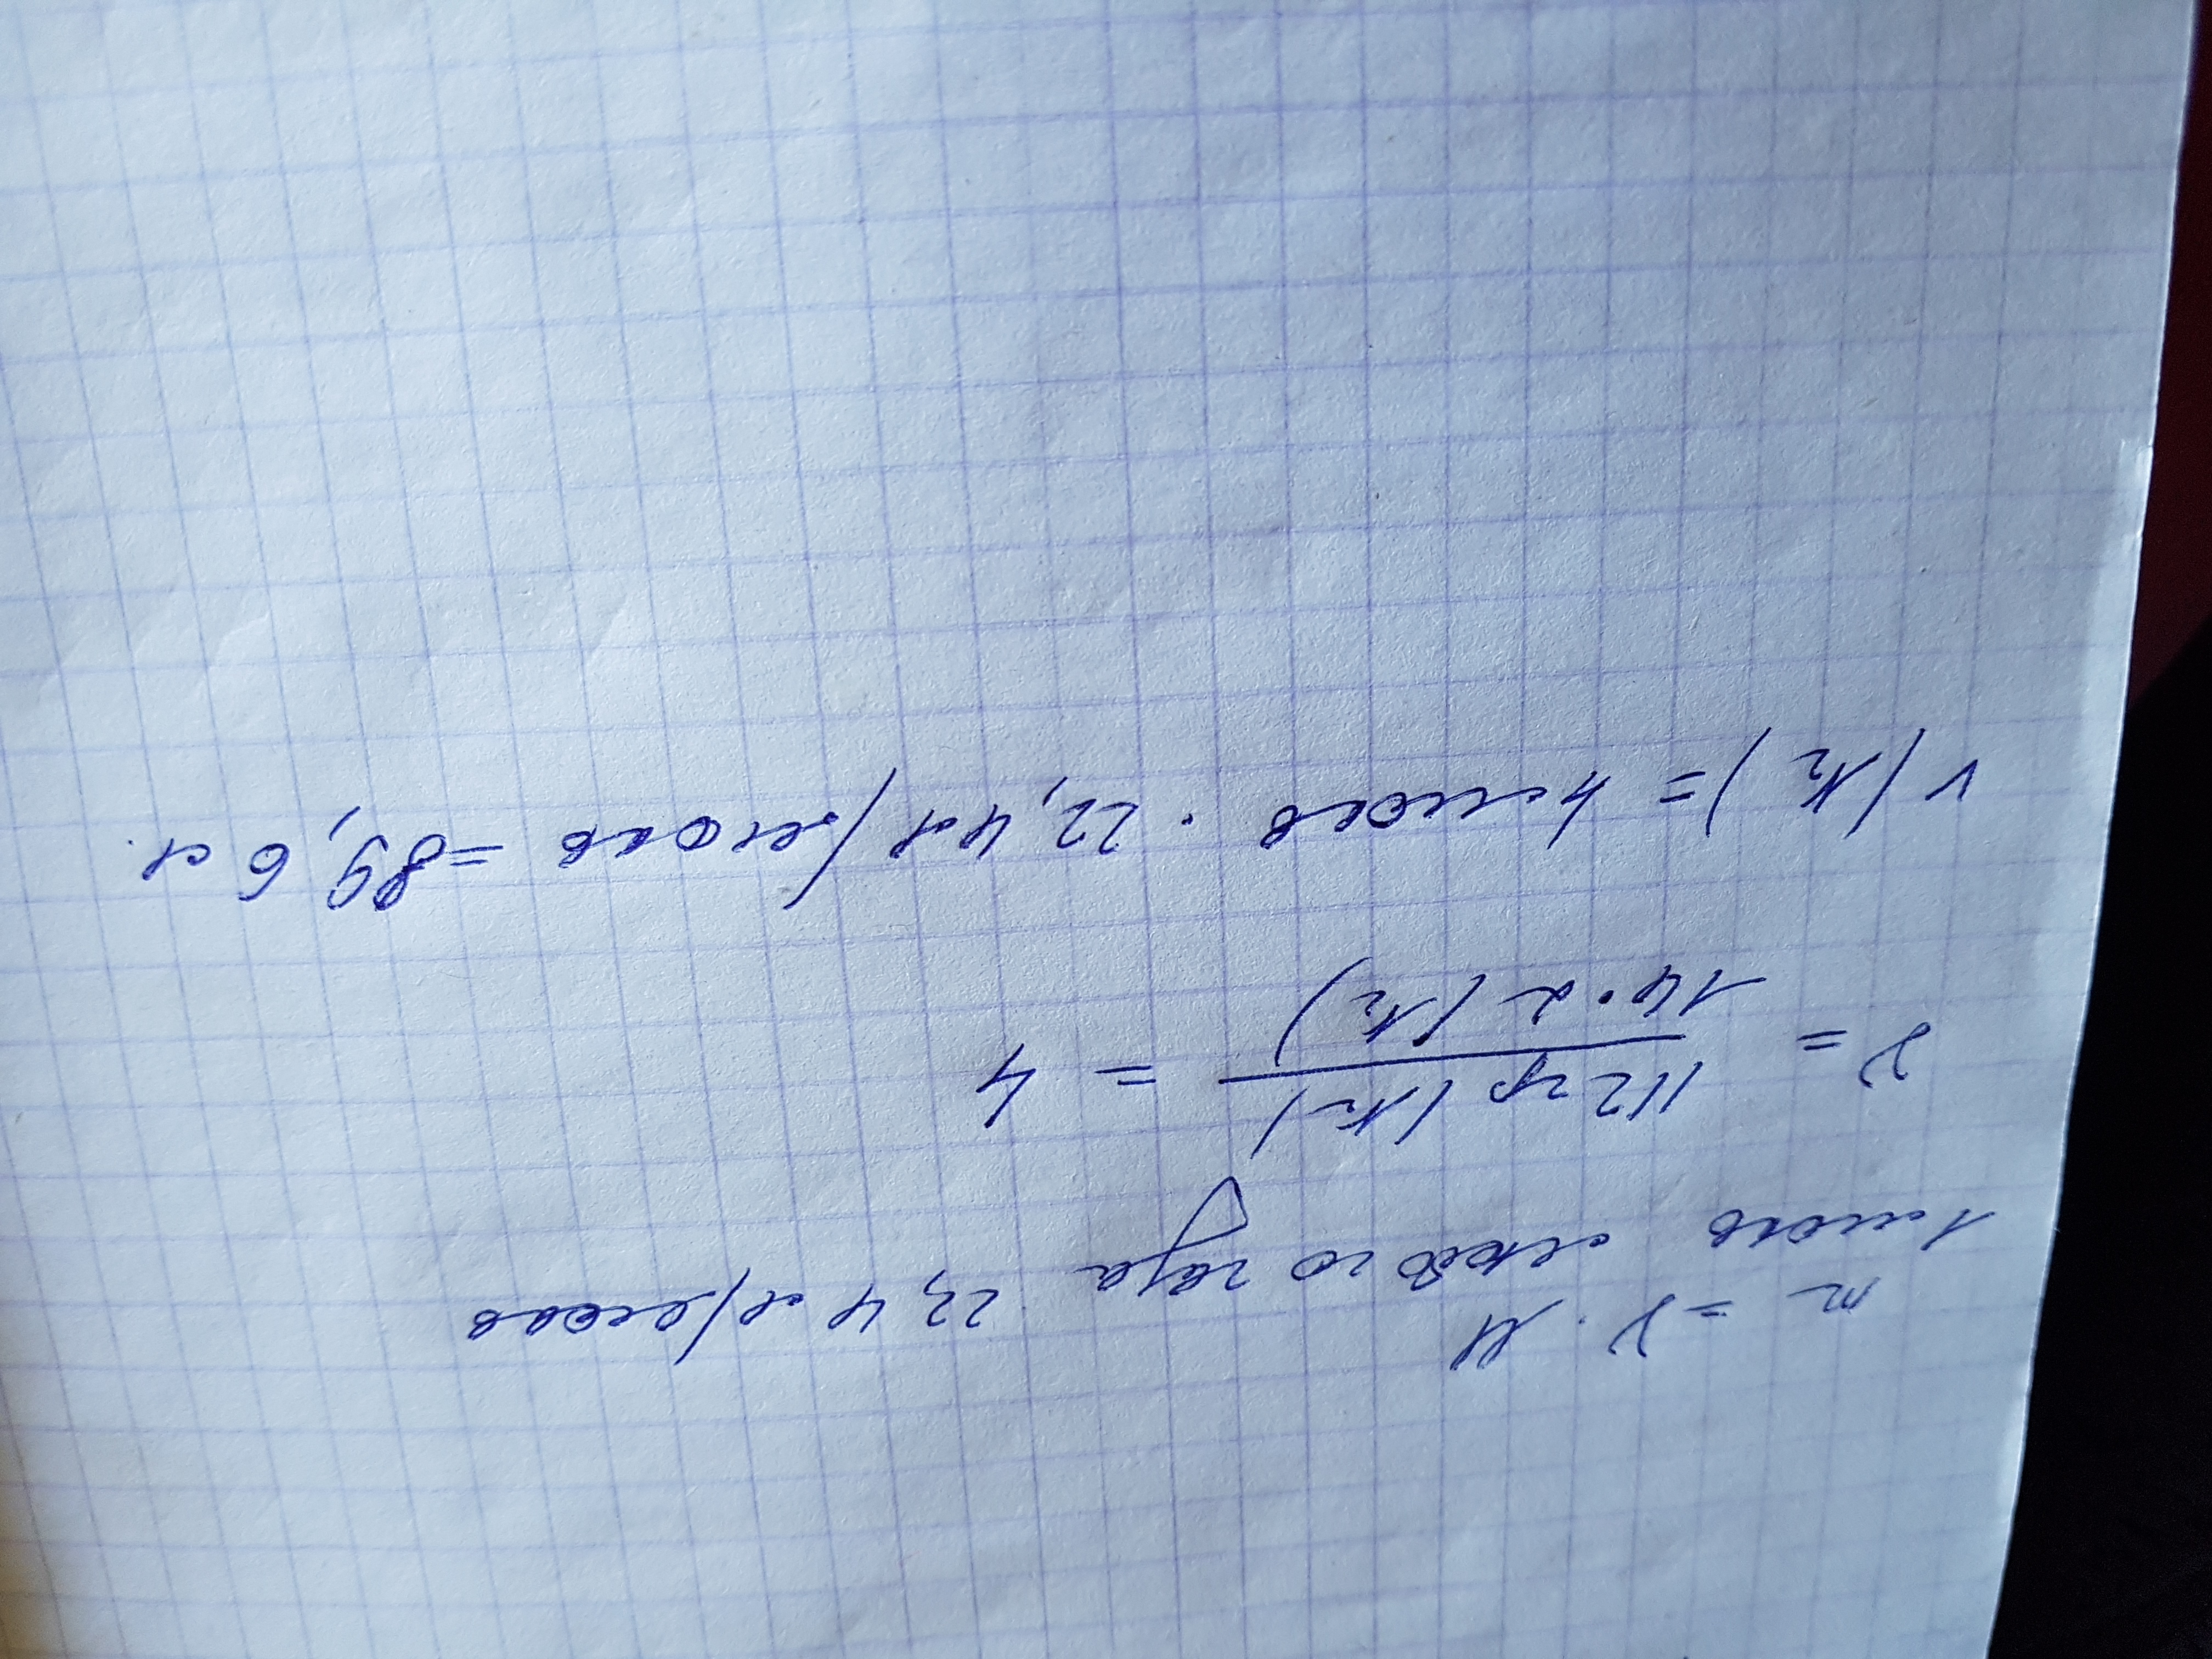 m = ν · M
1 моль любого газа 22,4 л/моль
ν = 112 гр (N₂) / 14 · 2 (N₂) = 4
V (N₂) = 4 моль · 22,4 л/моль = 89,6 л.